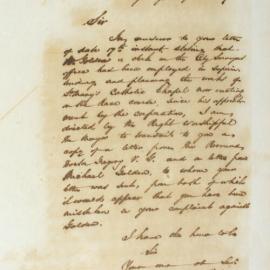 Sir
In answer to your letter
of date 17th instant stating that
Mr Golden a clerk in the City Surveyors
office had been employed in superin
tending and planning the works of
St Mary's Catholic Chapel now erecting
on the Race course, since his appoint
ment by the corporation, I am
directed by the Right Worshipful
the Mayor to transmit to you a
copy of a letter from the Reverend
Gregory V. G. and a letter from
Michael Golden, to whom your
letter was sent, from both of which
it would appear that you have been
mistaken in your complaint against
Golden.
I have the honor to be
Sir
Your most ob Serv